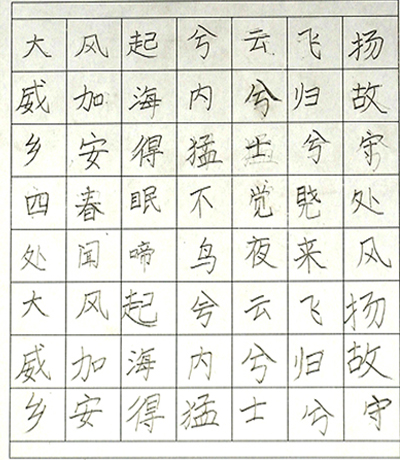 大风起兮云飞扬
威加海内兮归故
乡安得猛士兮守
四春眠不觉晓处
处闻啼鸟夜来风
大风起兮云飞扬
威加海内兮归故
乡安得猛士兮守